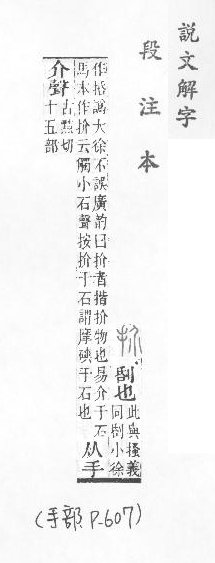 說文解字
段注本
扴
刮也
此與搔義
同刮小徐
作括誤大徐不誤廣韵曰扴者揩扴物也易介于石
馬本作扴云觸小石聲按扴于石謂摩于石也
从手
介聲
古黠切
十五部
(手部 P.607)